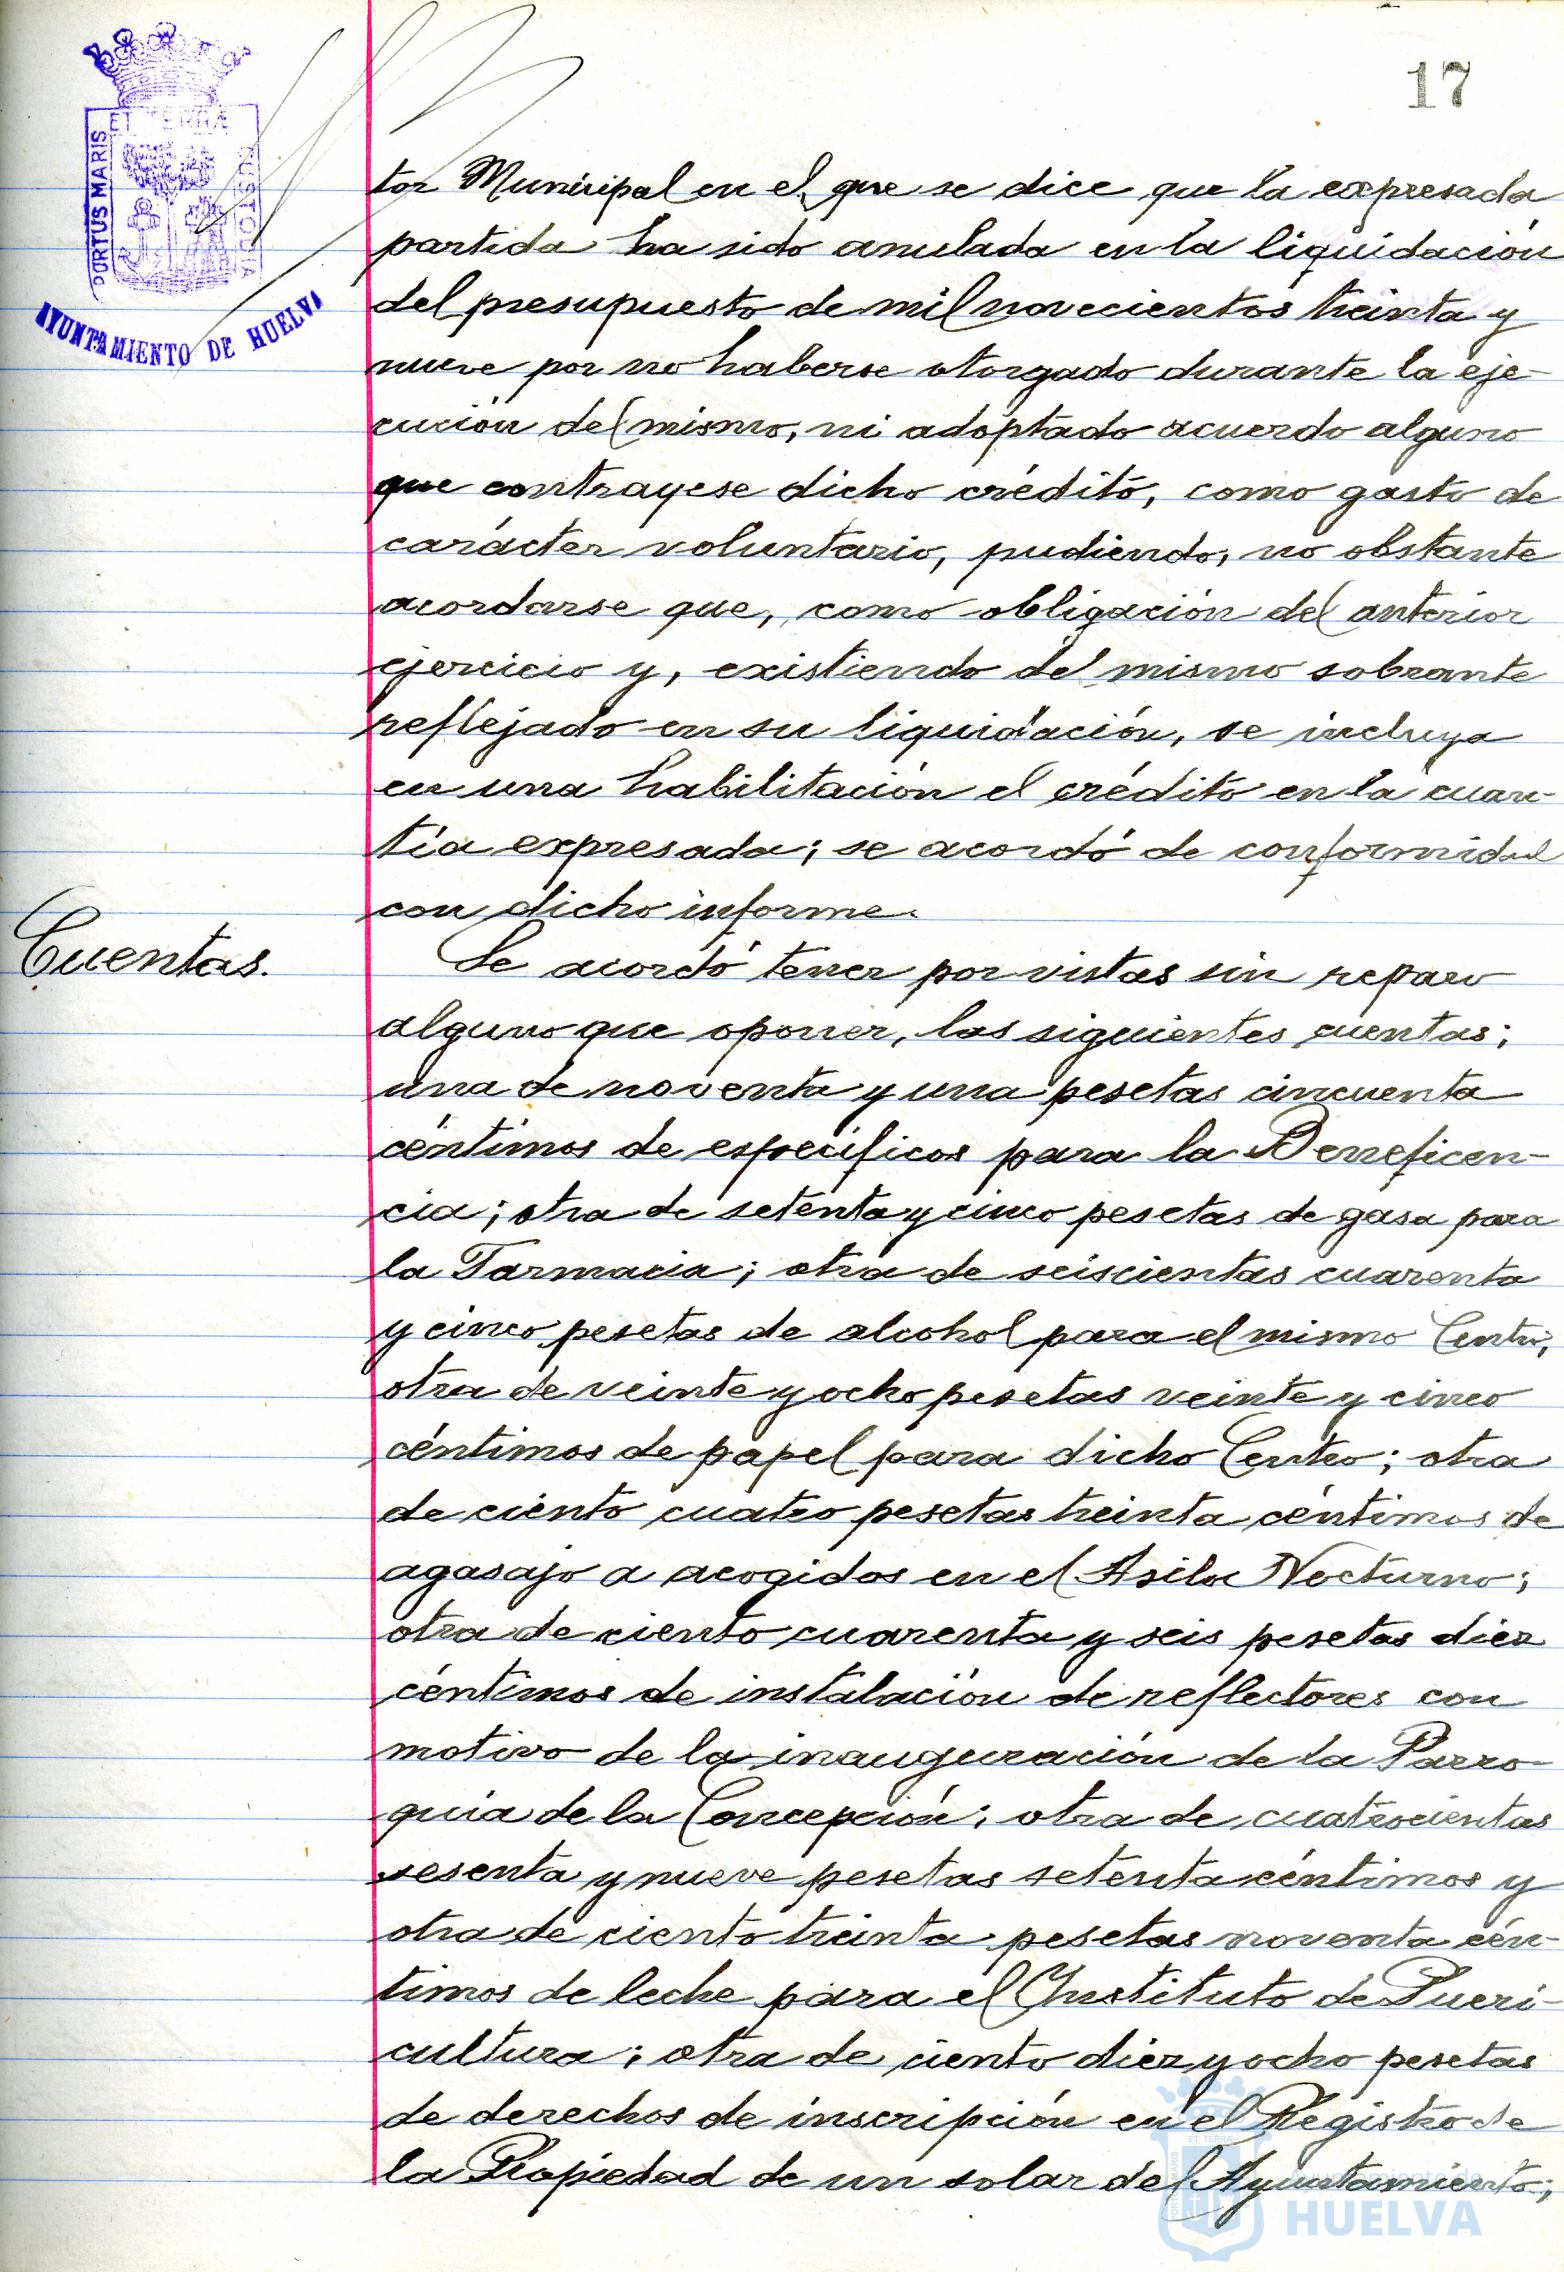 17
PORTUS MARIS
ET TERRÆ
CUSTODIA
AYUNTAMIENTO DE HUELVA
tor Municipal en el que se dice que la expresada
partida ha sido anulada en la liquidación
del presupuesto de mil novecientos treinta y
nueve por no haberse otorgado durante la eje-
cución del mismo, ni adoptado acuerdo alguno
que contrayese dicho crédito, como gasto de
carácter voluntario, pudiendo, no obstante
acordarse que, como obligación del anterior
ejercicio y, existiendo del mismo sobrante
reflejado en su liquidación, se incluya
en una habilitación el crédito en la cuan-
tía expresada; se acordó de conformidad
con dicho informe.
Cuentas.
Se acordó tener por vistas sin reparo
alguno que oponer, las siguientes cuentas;
una de noventa y una pesetas cincuenta
céntimos de específicos para la Beneficen-
cia; otra de setenta y cinco pesetas de gasa para
la Farmacia; otra de seiscientas cuarenta
y cinco pesetas de alcohol para el mismo Centro;
otra de veinte y ocho pesetas veinte y cinco
céntimos de papel para dicho Centro; otra
de ciento cuatro pesetas treinta céntimos de
agasajo a acogidos en el Asilo Nocturno;
otra de ciento cuarenta y seis pesetas diez
céntimos de instalación de reflectores con
motivo de la inauguración de la Parro-
quia de la Concepción; otra de cuatrocientas
sesenta y nueve pesetas setenta céntimos y
otra de ciento treinta pesetas noventa cén-
timos de leche para el Instituto de Pueri-
cultura; otra de ciento diez y ocho pesetas
de derechos de inscripción en el Registro de
la Propiedad de un solar del Ayuntamiento;
Ayuntamiento de
HUELVA